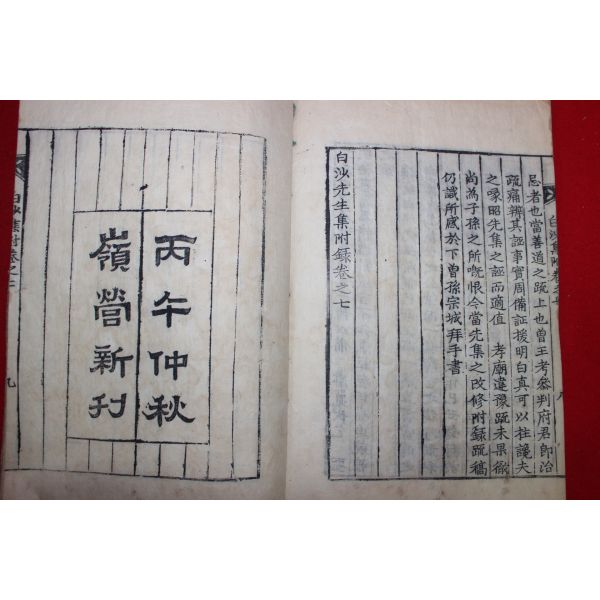 白沙集附卷之七
忌者也當善道之疏上也曾王考參判府君卽治
疏痛辨其誣事實周備証援明白真可以柱讒夫
之喙昭先集之誣而適值 孝廟違豫疏未果徹
尚為子孫之所嘅恨今當先集之改修附録疏稿
仍識所感於下曾孫宗城拜手書
白沙先生集附録卷之七
丙午仲秋
嶺營新刊
白沙集附卷之七
九